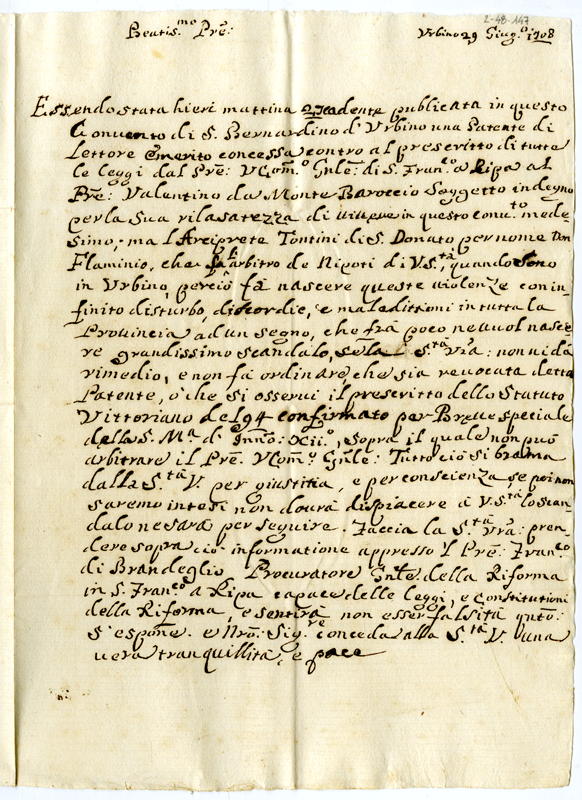 2-48-147
Beatis.mo Pre:
Urbino 29 Giug.o 1708
Essendo stata hieri mattina 28 cadente publicata in questo
Convento di S. Bernardino d'Urbino una Patente di
Lettore Emerito concessa contro al prescritto di tutte
le leggi dal Pre: VCom.o Gnle: di S. Fran.co a Ripa al
Pre: Valentino da Monte Baroccio Soggetto indegno
per la sua rilasatezza di vivere in questo conv.to mede-
simo; ma l'Arciprete Tontini di S. Donato per nome Don
Flaminio, che fa l'arbitro de Nipoti di V.S.tà, quando sono
in Urbino, perciò fà nascere queste violenze con in-
finito disturbo, discordie, e maledittioni in tutta la
Provincia ad un segno, che frà poco ne vuol nasce-
re grandissimo scandalo, se la S.tà Vra: non vi dà
rimedio, e non fà ordinare, che sia revocata detta
Patente, ò che si osservi il prescritto dello Statuto
Vittoriano del 94 confirmato per Breve speciale
della S. Ma d'Inno: XII.o, sopra il quale non può
arbitrare il Pre: VCom.o Gnle: Tutto ciò si brama
dalla S.tà V. per giustitia, e per conscienza, se poi non
saremo intesi non dourà dispiacere à V.S.tà lo scan-
dalo ne sarà per seguire. Faccia la S.tà Vra: pren-
dere sopra ciò informatione appresso 'l Pre: Fran.co
di Brandeglio Procuratore Gnle: della Riforma
in S. Fran.co a Ripa capace delle leggi, e Constitutioni
della Riforma, e sentirà non esser falsità qnto:
s'espone. e Nro: Sig.re conceda alla S.tà V. una
vera tranquillità, e pace